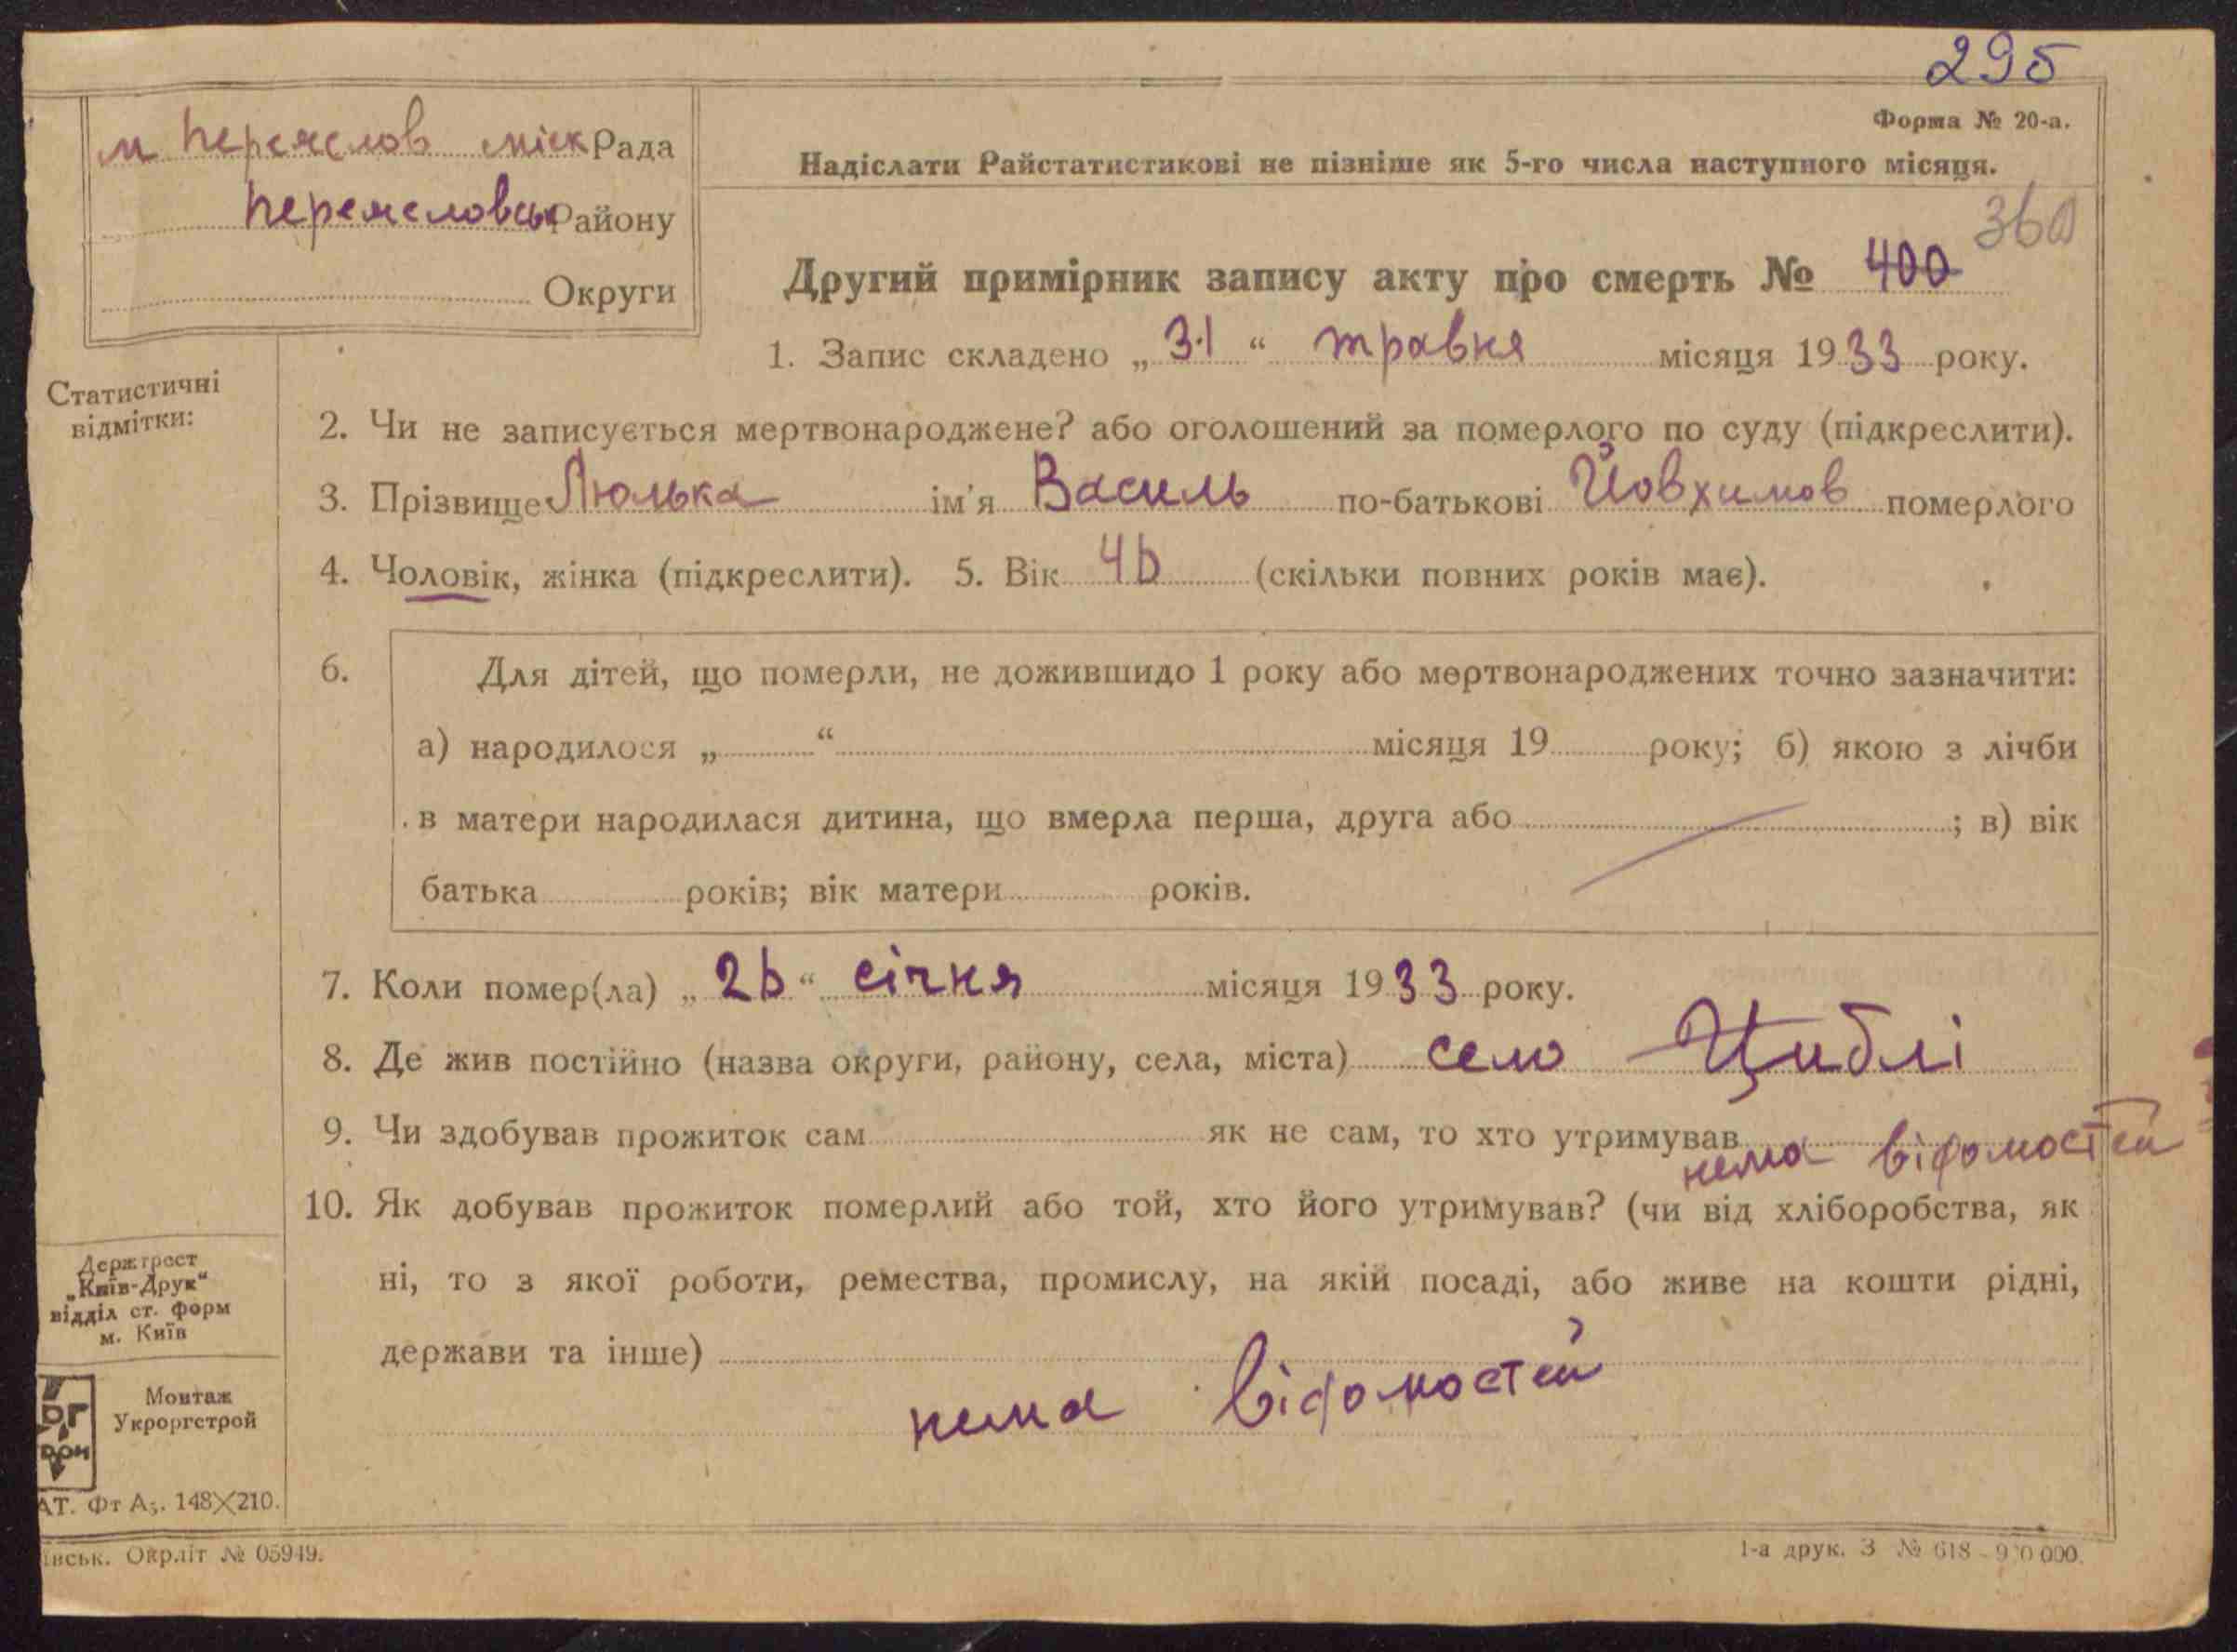 295
Форма № 20-а.
м Переяслов міськ Рада
Надіслати Райстатистикові не пізніше як 5-го числа наступного місяця.
Переясловськ Району
Округи
360
Другий примірник запису акту про смерть № 400
1. Запис складено „31“ травня місяця 1933 року.
Статистичні
відмітки:
2. Чи не записується мертвонароджене? або оголошений за померлого по суду (підкреслити).
3. Прізвище Люлька ім'я Василь по-батькові Йовхимов померлого
4. Чоловік, жінка (підкреслити). 5. Вік 46 (скільки повних років має).
6. Для дітей, що померли, не дожившидо 1 року або мертвонароджених точно зазначити:
а) народилося „ “ місяця 19 року; б) якою з лічби
в матери народилася дитина, що вмерла перша, друга або ; в) вік
батька років; вік матери років.
7. Коли помер(ла) „26“ січня місяця 1933 року.
8. Де жив постійно (назва округи, району, села, міста) село Циблі
9. Чи здобував прожиток сам як не сам, то хто утримував нема відомостей
10. Як добував прожиток померлий або той, хто його утримував? (чи від хліборобства, як
ні, то з якої роботи, ремества, промислу, на якій посаді, або живе на кошти рідні,
держави та інше)
нема відомостей
Держтрест
„Київ-Друк“
відділ ст. форм
м. Київ
Монтаж
Укроргстрой
АТ. Фт А5. 148X210.
івськ. Окрліт № 05949.
1-а друк. З № 618